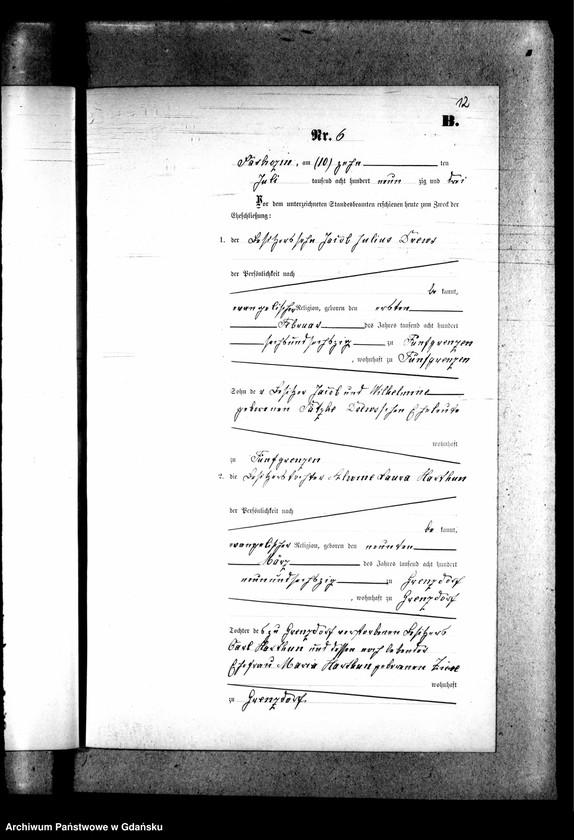 12
B.
Nr. 6
am (10) zehn ten
Juli tausend acht hundert neun zig und drei
Vor dem unterzeichneten Standesbeamten erschienen heute zum Zweck der
Eheschließung:
1. der Besitzerssohn Jacob Julius Drews
der Persönlichkeit nach
be kannt,
evangelischer Religion, geboren den ersten
Februar des Jahres tausend acht hundert
sechsundsechszig zu Fünfgrenzen
, wohnhaft zu Fünfgrenzen
Sohn der Besitzer Jacob und Wilhelmine
geborenen Drewsschen Eheleute
wohnhaft
zu Fünfgrenzen
2. die Besitzerstochter Laura Karthun
der Persönlichkeit nach
be kannt,
evangelischer Religion, geboren den neunten
März des Jahres tausend acht hundert
neunundsechszig zu Grenzdorf
, wohnhaft zu Grenzdorf
Tochter des zu Grenzdorf verstorbenen Besitzers
Carl Karthun und dessen noch lebender
Ehefrau Maria Karthun geborenen
wohnhaft
zu Grenzdorf.
Archiwum Państwowe w Gdańsku